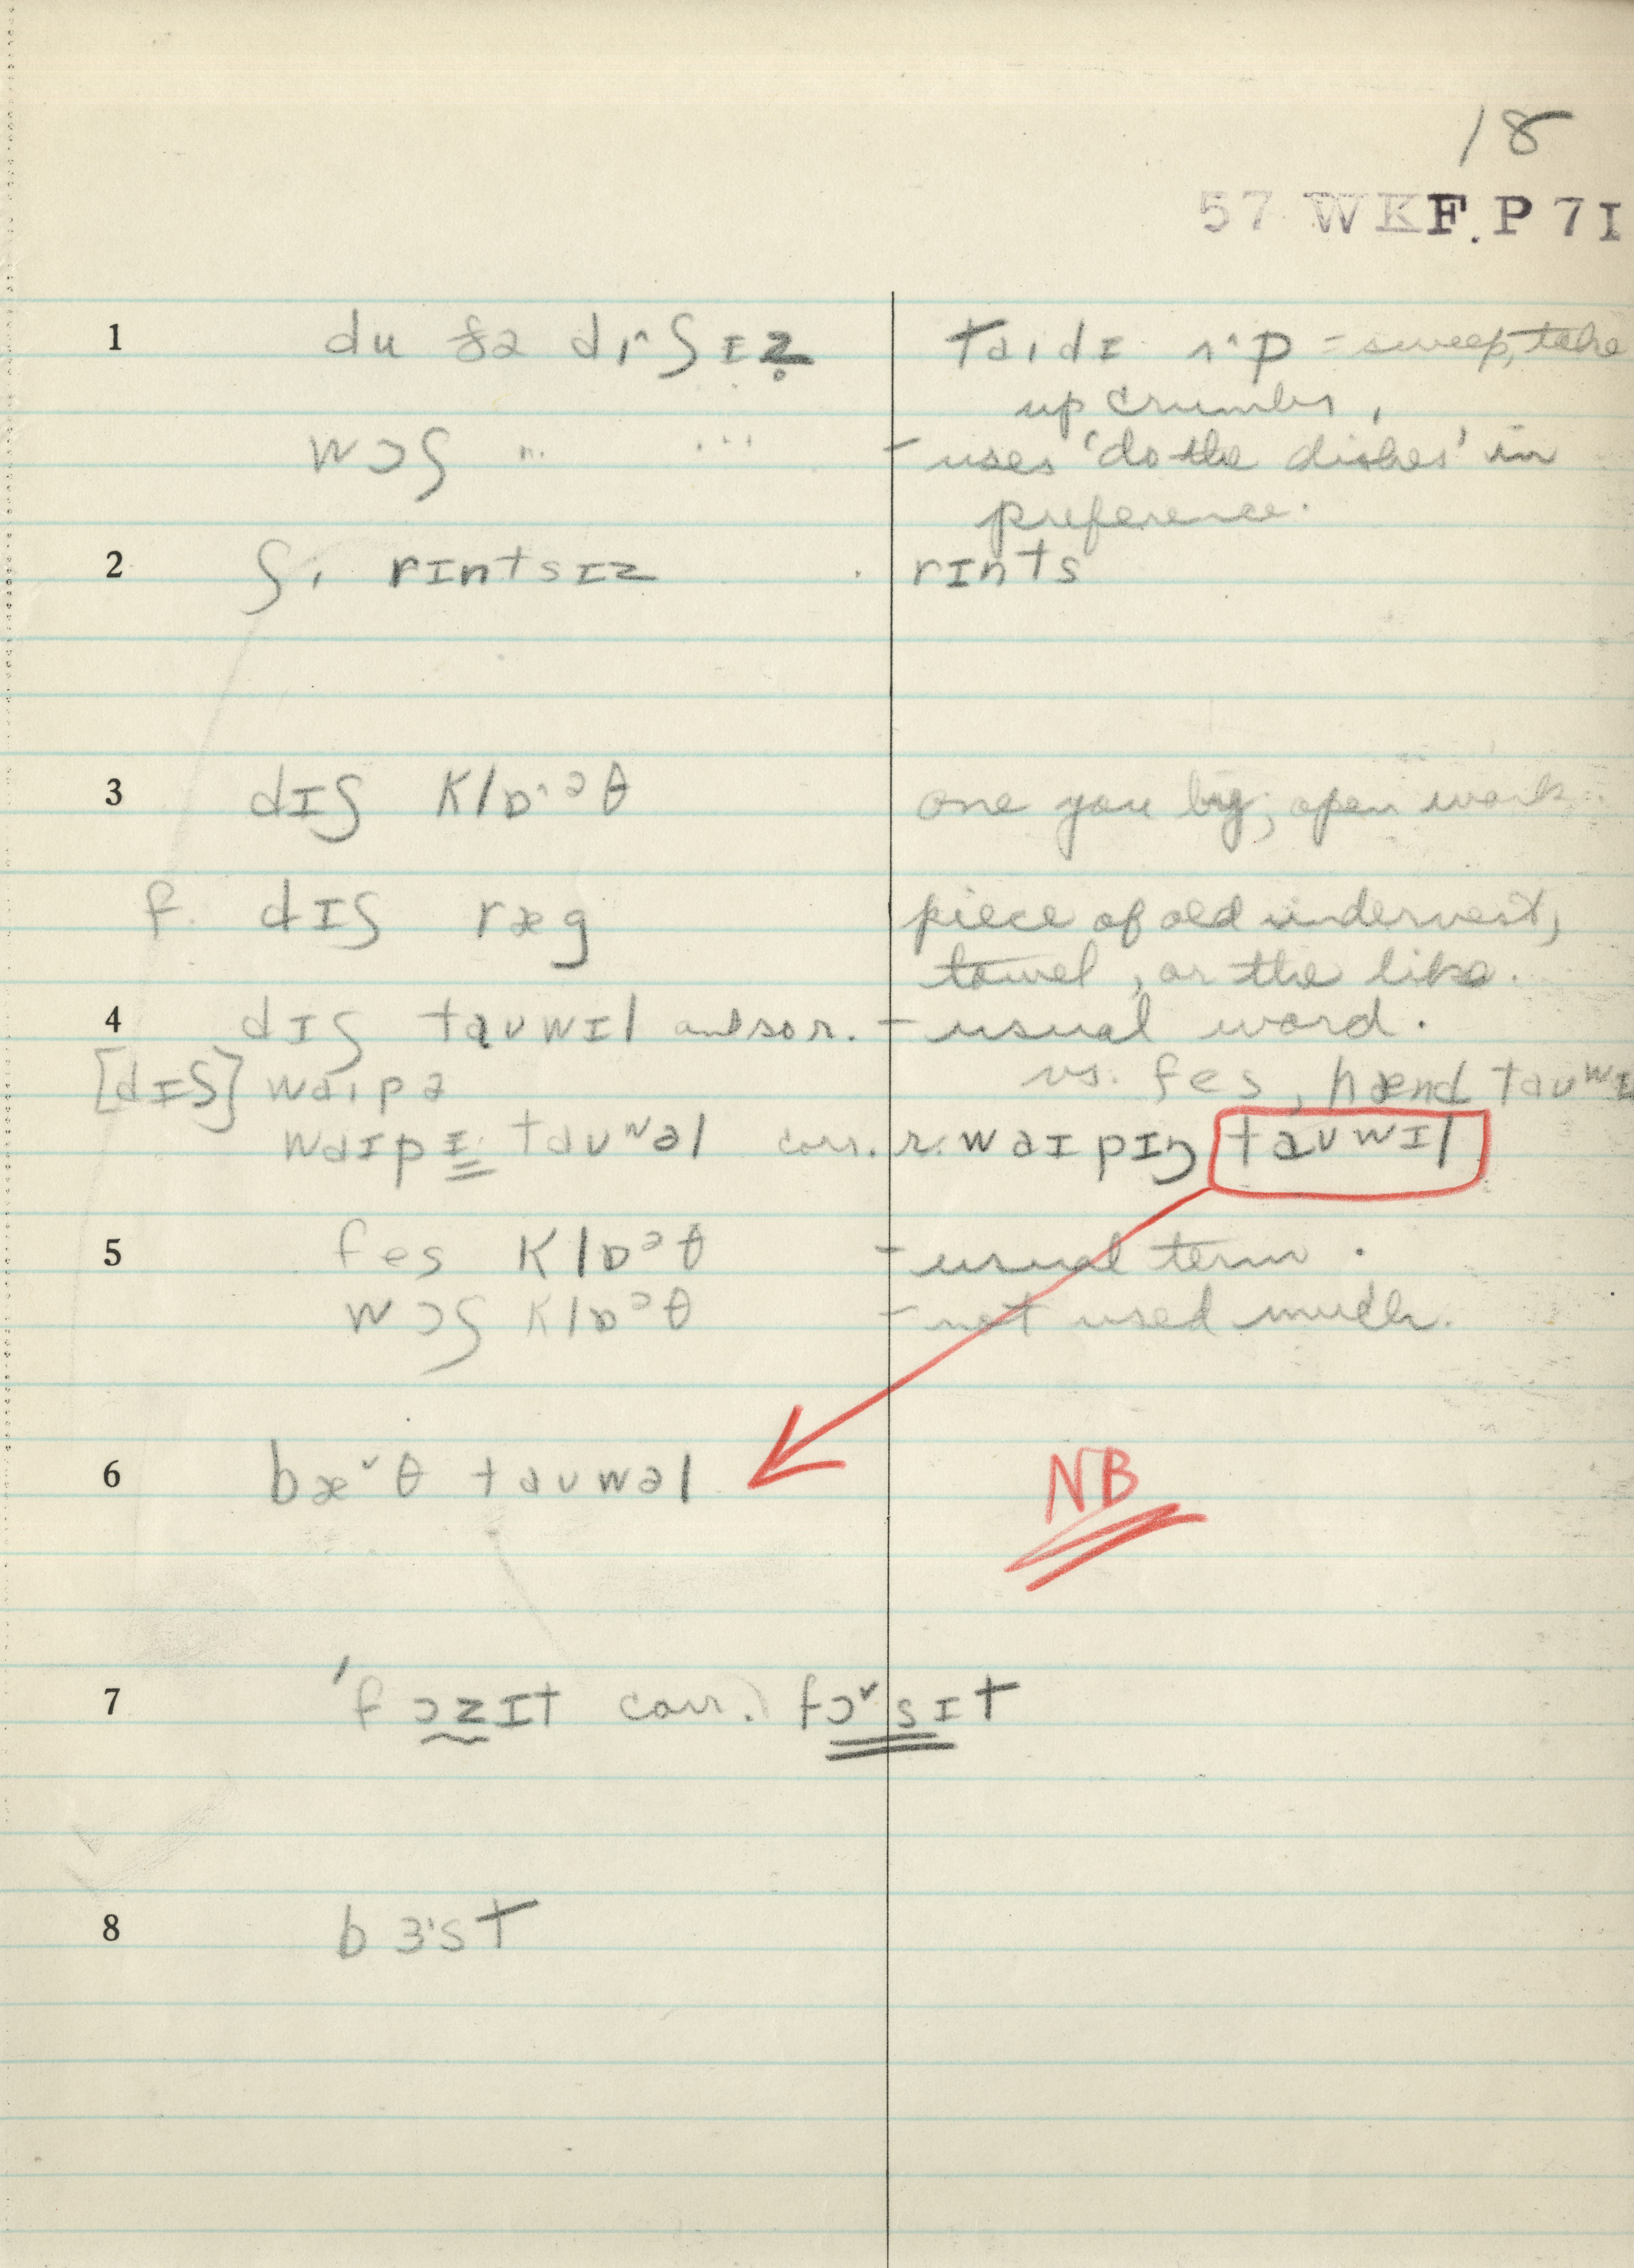 18
57 WKF. P 71
1 du ðə dɪ^ʃɪz̥ taɪdɪ ʌ^p = sweep, take
up crumbs,
wɔʃ " ... - uses 'do the dishes' in
preference.
2 ʃi rɪntsɪz rɪnts
3 dɪʃ klɒ^əθ one you buy; open work
f. dɪʃ ræg piece of old undervest,
towel, or the like.
4 dɪʃ taʊwɪl and so r. - usual word.
[dɪʃ] waipə vs. fes, hænd taʊwɪ
waɪpɪ taʊʷəl corr. r. waɪpɪŋ taʊwɪl
5 fes klɒᵊθ - usual term.
wɔʃ klɒᵊθ - not used much.
6 bæ˅θ taʊwəl NB
7 'fɔzɪt corr. fɔ˅sɪt
8 bɜ'st